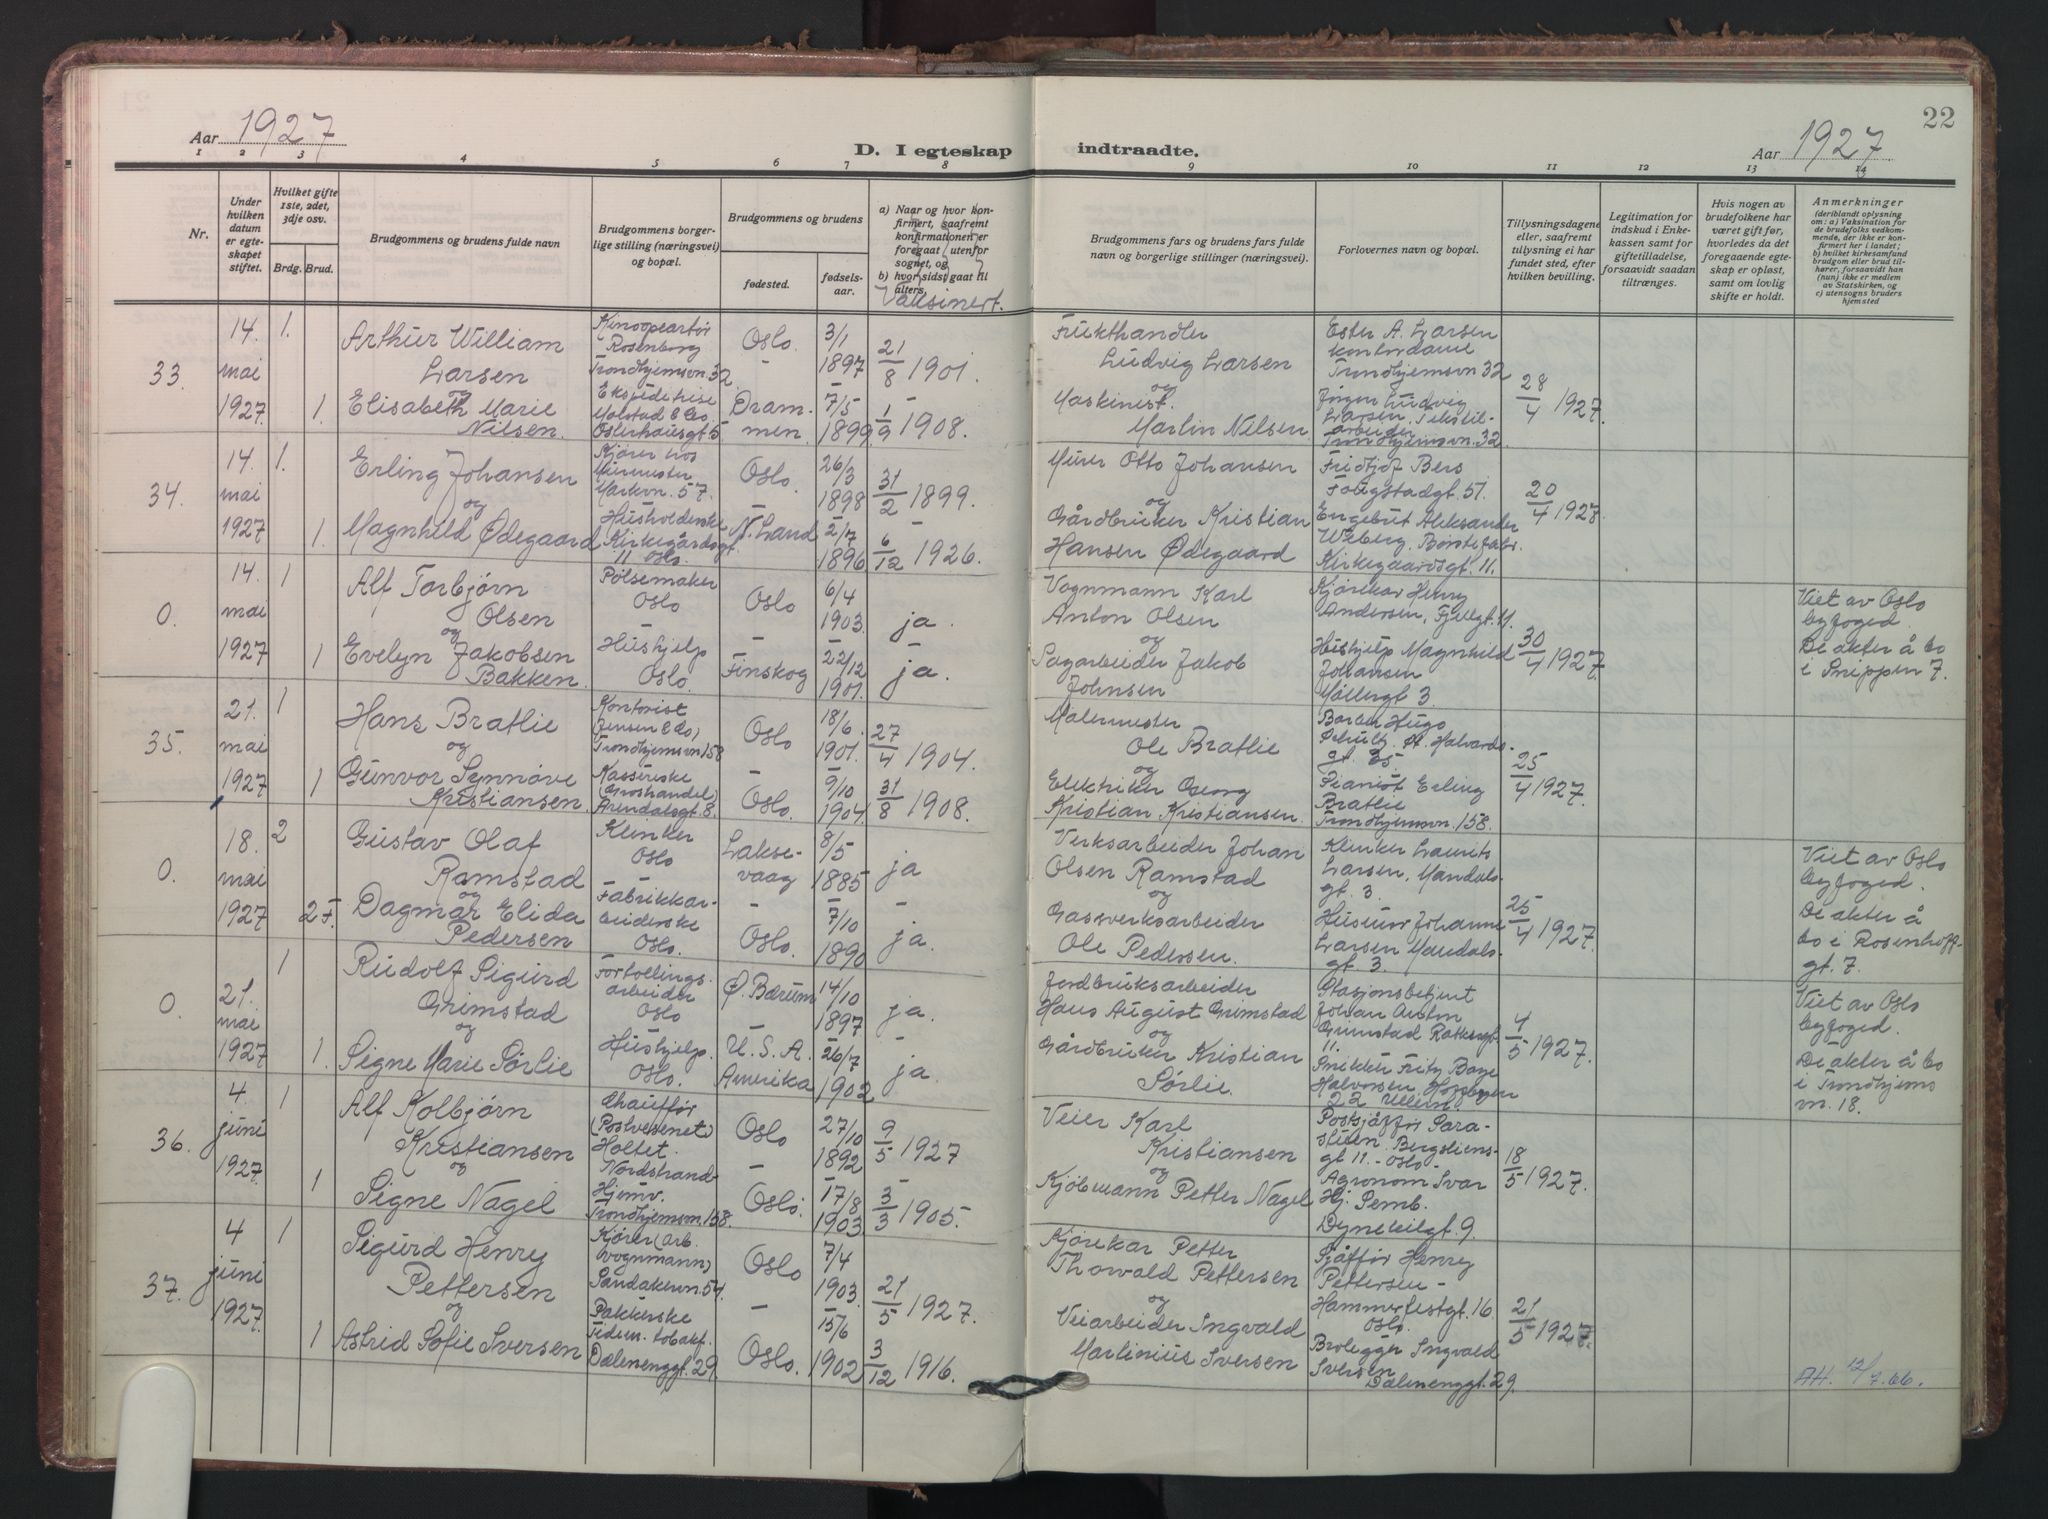 22
Aar 1927
D. I egteskap indtraadte.
Aar 1927
1 2 3 4 5 6 7 8 9 10 11 12 13 14
Nr.
Under hvilken datum er egteskapet stiftet.
Hvilket gifte 1ste, 2det, 3dje osv.
Brdg. Brud.
Brudgommens og brudens fulde navn
Brudgommens borgerlige stilling (næringsvei) og bopæl.
Brudgommens og brudens
fødested.
fødselsaar.
a) Naar og hvor konfirmert, saafremt konfirmationen er foregaat utenfor sognet, og
b) hvor sidst gaat til alters.
Vaksinert.
Brudgommens fars og brudens fars fulde navn og borgerlige stillinger (næringsvei).
Forlovernes navn og bopæl.
Tillysningsdagene eller, saafremt tillysning ei har fundet sted, efter hvilken bevilling.
Legitimation for indskud i Enkekassen samt for giftetilladelse, forsaavidt saadan tiltrænges.
Hvis nogen av brudefolkene har været gift før, hvorledes da det foregaaende egteskap er opløst, samt om lovlig skifte er holdt.
Anmerkninger
(deriblandt oplysning om: a) Vaksination for de brudefolks vedkommende, der ikke er konfirmert her i landet; b) hvilket kirkesamfund brudgom eller brud tilhører, forsaavidt han (hun) ikke er medlem av Statskirken, og c) utensogns bruders hjemsted
33.
14. mai 1927
1.
1
Arthur William Larsen
og
Elisabeth Marie Nilsen.
Rosenborg
Trondhjemsvn. 32
Ekspeditrise
Osterhausgt. 5
Oslo. 3/1 1897
21/8 1901.
Drammen. 7/5 1899
1/9 1908.
Frukthandler
Ludvig Larsen
og
Maskinist.
Martin Nilsen
Ester A. Larsen
kontordame
Trondhjemsvn 32
Jørgen Ludvig
Larsen. Tekstilarbeider
Trondhjemsvn. 32
28/4 1927.
34.
14. mai 1927
1.
1.
Erling Johansen
og
Magnhild Ødegaard
Kjører hos
Murmester
Markvn. 57.
Husholderske
Kirkegårdsgt.
11 Oslo.
Oslo. 26/3 1898
31/2 1899.
N. Land 2/7 1896
6/12 1926.
Murer Otto Johansen
og
Gårdbruker Kristian
Hansen Ødegaard
Fridtjof Berg
Fougstadgt. 51.
Engebret Aleksander
Wiberg. Børstefabr.
Kirkegaardsgt. 11.
20/4 1927.
0.
14. mai 1927
1
1
Alf Torbjørn
Olsen
og
Evelyn Jakobsen
Bakken.
Pølsemaker
Oslo
Hushjelp
Oslo.
Oslo 6/4 1903.
ja.
Finskog 22/12 1901.
ja.
Vognmann Karl
Anton Olsen
og
Sagarbeider Jakob
Johnsen
Kjørekar Henry
Andersen, Fjellgt. 11.
Hushjelp Magnhild
Johansen
Møllergt 3.
30/4 1927.
Viet av Oslo
byfoged.
De akter å bo
i Snippen 7.
35.
21. mai 1927
1
1
Hans Bratlie
og
Gunvor Synnøve
Kristiansen.
Kontorist
(Jensen & Co,)
Trondhjemsvn. 158
Kasserske
(Groshandel)
Arendalsgt. 8.
Oslo 18/6 1901.
27/4 1904.
Oslo. 9/10 1904.
31/8 1908.
Malermester
Ole Bratlie
og
Elektriker Georg
Kristian Kristiansen.
Barber Hugo
St. Halvardsgt. 35.
Pianist Erling
Bratlie
Trondhjemsvn. 158.
25/4 1927.
0.
18. mai 1927
2
2 F.
Gustav Olaf
Ramstad
og
Dagmar Elida
Pedersen
Klinker
Oslo
Fabrikkarbeiderske
Oslo.
Laksevaag 8/5 1885
ja
Oslo. 7/10 1890
ja.
Verksarbeider Johan
Olsen Ramstad
og
Gassverksarbeider
Ole Pedersen.
Klinker Laurits
Larsen, Mandalsgt. 3
Husmor Johanne
Larsen Mandalsgt. 3.
25/4 1927.
Viet av Oslo
byfoged.
De akter å
bo i Rosenhoffgt. 7.
0.
21. mai 1927
1
1.
Rudolf Sigurd
Grimstad
og
Signe Marie Sørlie
arbeider
Oslo
Hushjelp.
Oslo.
Ø. Bærum 14/10 1897
ja.
U.S.A. Amerika 26/7 1902
ja.
Jordbruksarbeider
Hans August Grimstad
og
Gårdbruker Kristian
Sørlie.
Stasjonsbetjent
Johan Anton
Grimstad Rattkesgt.
11.
Snikker Fritz Børge
Halvorsen
22 Ullern.
4/5 1927.
Viet av Oslo
byfoged.
De akter å bo
i Trondhjemsvn. 18.
36.
4. juni 1927.
1
1
Alf Kolbjørn
Kristiansen
og
Signe Nagel
Chauffør
(Postvesenet)
Holtet.
Nordstrand
Hjemv.
Trondhjemsvn. 158.
Oslo 27/10 1892
9/5 1927
Oslo. 17/8 1903.
3/3 1905.
Veier Karl
Kristiansen
og
Kjøbmann Petter Nagel
Postsjåffør
Bergsliensgt 11. - Oslo-
Agronom Ivar
Hj. Pemb.
Dyneteilgt. 9.
18/5 1927.
37.
4 juni 1927.
1
1
Sigurd Henry
Pettersen
og
Astrid Sofie Iversen
Kjører (arb.
vognmann)
Sandakervn. 54.
Pakkerske
Tidem. tobakf.
Dælenenggt. 29.
Oslo 7/4 1903.
21/5 1927.
Oslo. 15/6 1902
3/12 1916.
Kjørekar Petter
Thorvald Pettersen
og
Veiarbeider Ingvald
Martinius Iversen
Sjåffør Henry
Pettersen -
Hammerfestgt. 16
Oslo.
Brolegger Ingvald
Iversen
Dælenenggt. 29.
21/5 1927.
AH. 12/7.66.